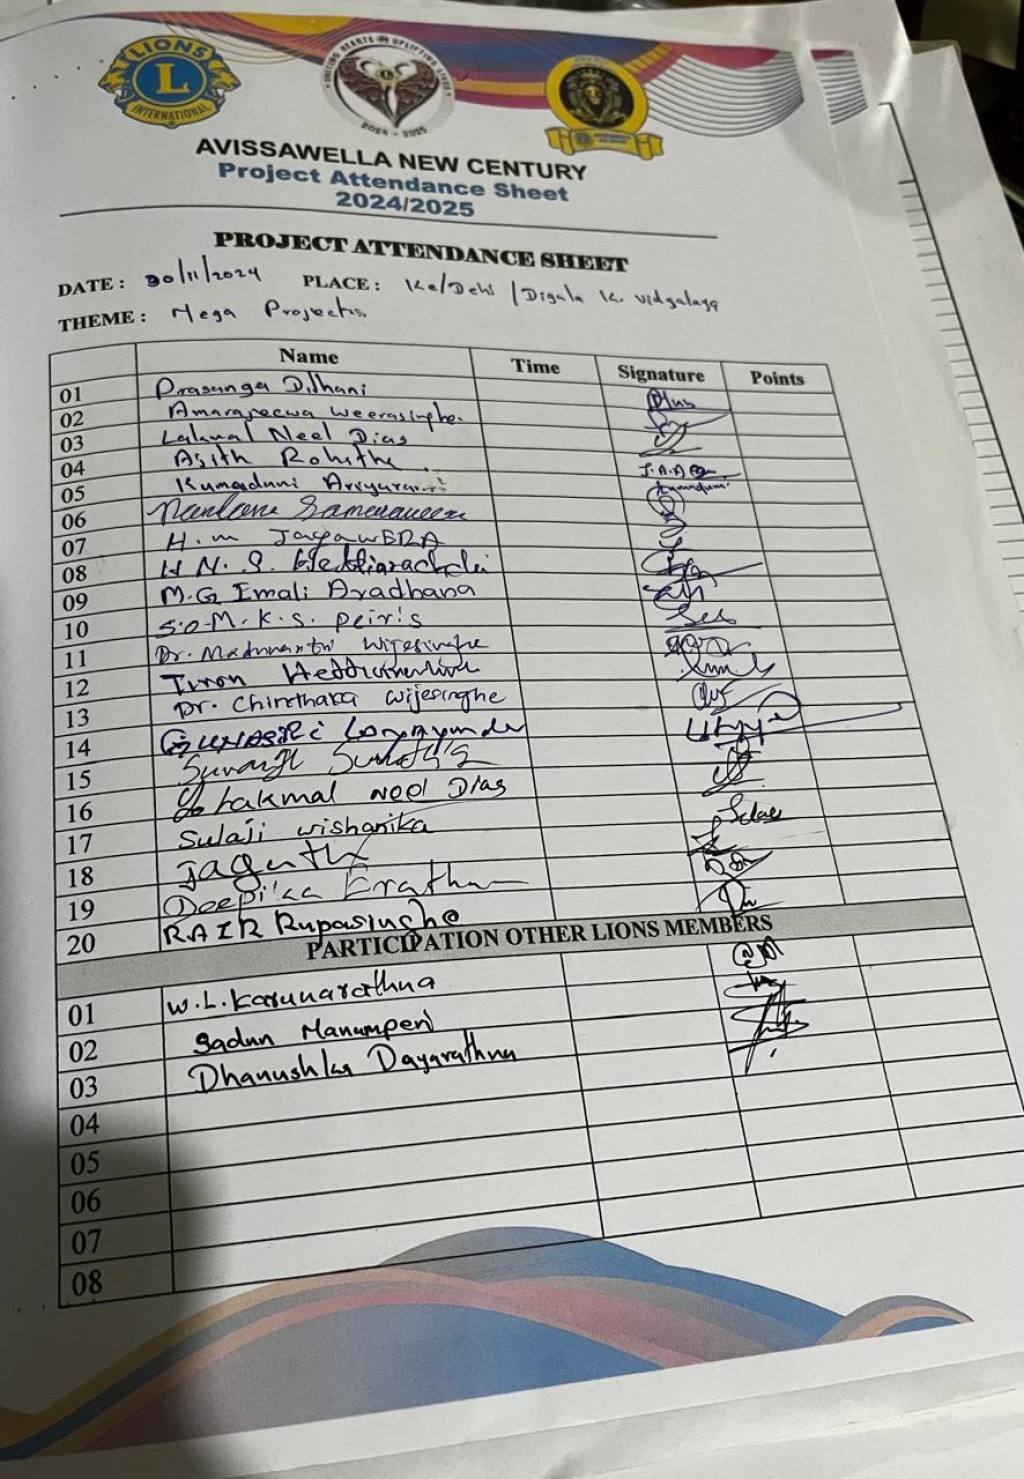 LIONS
L
INTERNATIONAL
UNITING HEARTS UPLIFTING LIVES
2024 - 2025
AVISSAWELLA NEW CENTURY
Project Attendance Sheet
2024/2025
PROJECT ATTENDANCE SHEET
DATE : 30/11/2024 PLACE : Ke/Dehi / Digala K. vidyalaya
THEME : Mega Projects
Name Time Signature Points
01 Prasanga Dilhani
02 Amarajeewa Weerasinghe.
03 Lakmal Neel Dias
04 Asith Rohitha J.A.A
05 Kumaduni
06
07 H.M
08 H N. S. Hettiarachchi
09 M.G Emali Aradhana
10 S.O.M.K.S. peiris
11 Dr. Wijesinghe
12
13 Dr. Chinthaka wijesinghe
14
15
16 Lakmal Neel Dias
17 Sulaji wishanika
18
19 Deepika
20 R.A.I.R Rupasinghe
PARTICIPATION OTHER LIONS MEMBERS
01 W.L. Karunarathna
02 Sadun Manamperi
03 Dhanushka Dayarathna
04
05
06
07
08